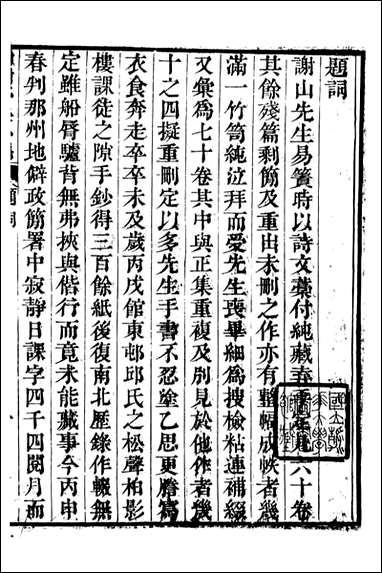 題詞
謝山先生易簀時以詩文稾付純藏弆 六十卷
其餘殘篇剩簡及重由未刪之作亦有整幅成帙者幾
滿一竹笥純泣拜而受先生喪畢細為搜檢粘連補綴
又彙為七十卷其中與正集重複及別見於他作者幾
十之四擬重刪定以多先生手書不忍塗乙思更謄寫
衣食奔走卒卒未及歲丙戌館東邨邱氏之松聲柏影
樓課徒之隙手鈔得三百餘紙後復南北歷錄作輟無
定雖船脣驢背無弗挾與偕行而竟未能蕆事今丙申
春判那州地僻政簡署中寂靜日課字四千四閱月而